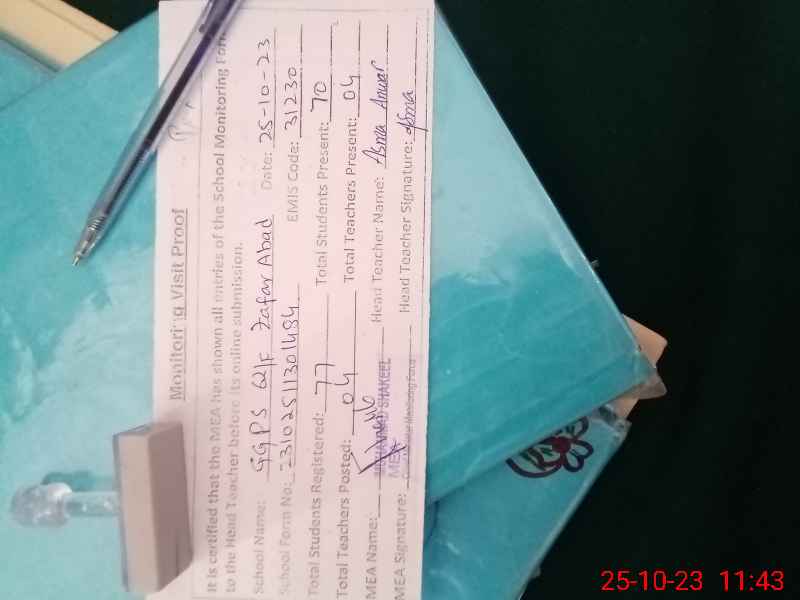 Monitoring Visit Proof
It is certified that the MEA has shown all entries of the School Monitoring Form
to the Head Teacher before its online submission.
School Name: GGPS 62/F Zafar Abad Date: 25-10-23
School Form No: 23102511301484 EMIS Code: 31230
Total Students Registered: 77 Total Students Present: 70
Total Teachers Posted: 04 Total Teachers Present: 04
MEA Name: MUHAMMAD SHAKEEL Head Teacher Name: Asma Anwar
MEA Signature: MEA Head Teacher Signature: Asma
Monitoring Force
25-10-23 11:43